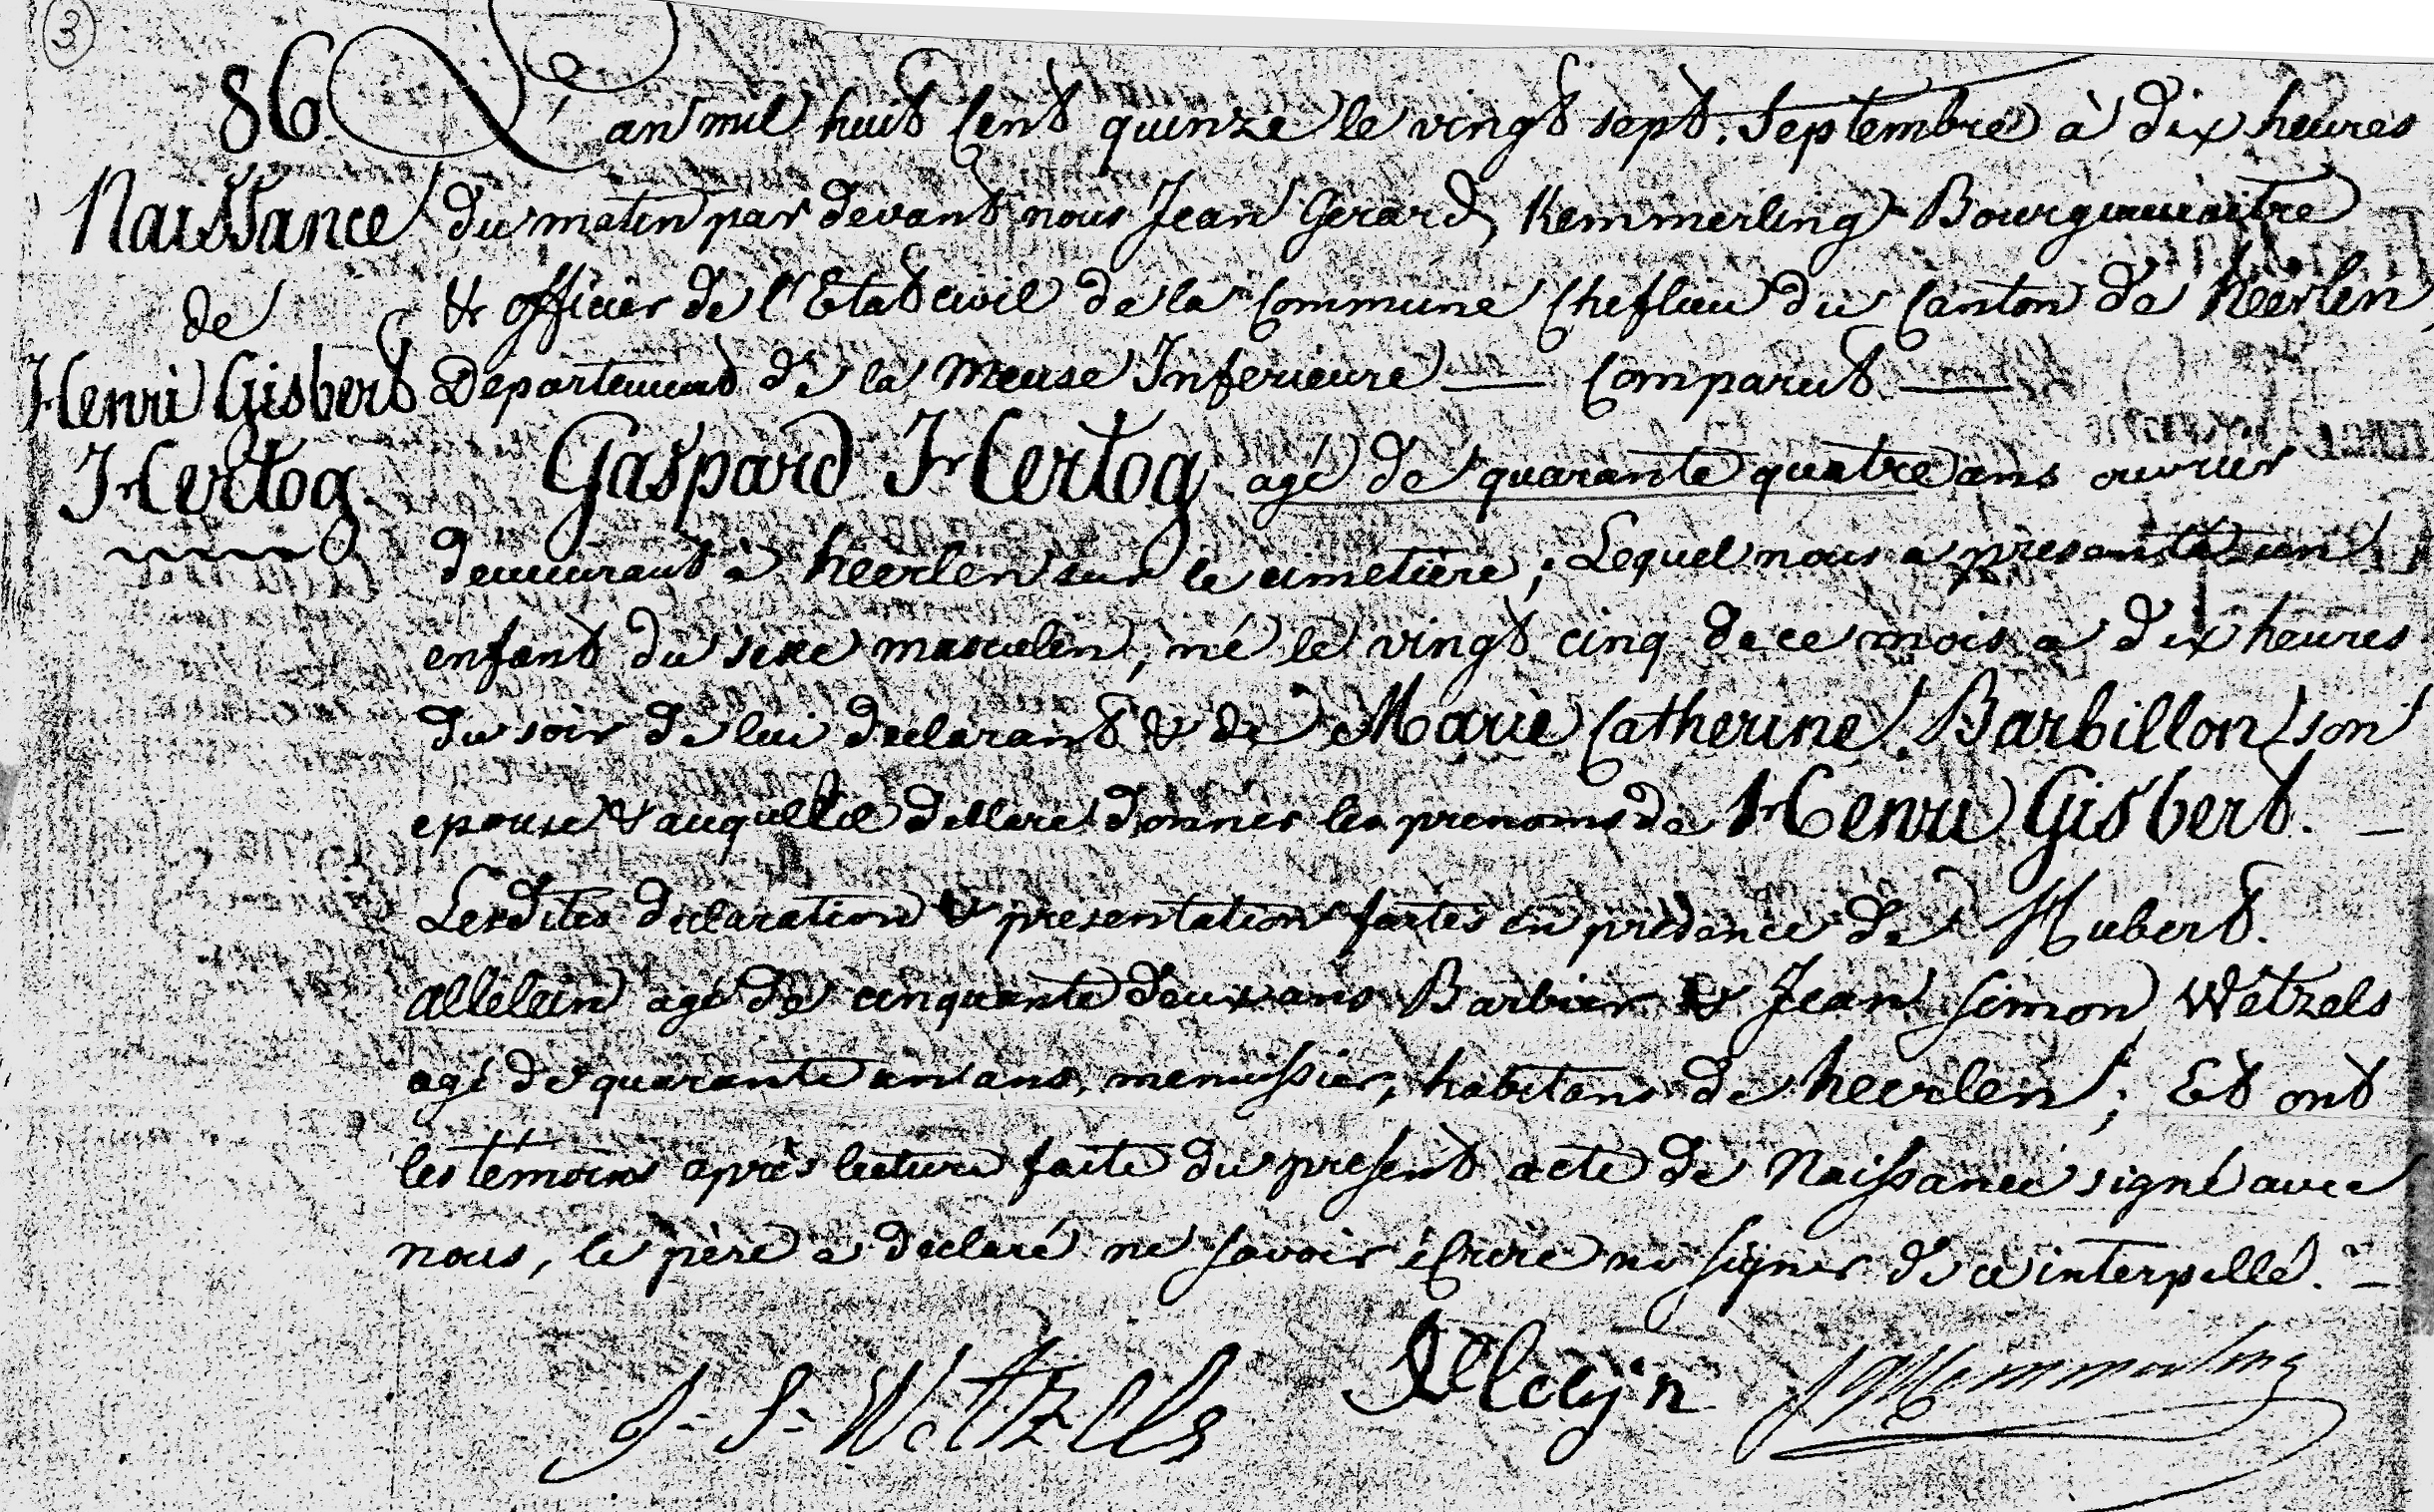 3
86
L'an mil huit Cent quinze le vingt sept. Septembre à dix heures
Naissance
du matin par devant nous Jean Gerard Kemmerling Bourguemaitre
de
& officier de l'Etat civil de la Commune Cheflieu du Canton de heerlen,
Henri Gisbert
Departement de la Meuse Inferieure — Comparut —
Hertog
Gaspard Hertog agé de quarante quatre ans ouvrier
demeurant à heerlen sur le cimetière; Lequel nous a presenté un
enfant du sexe masculin, né le vingt cinq de ce mois a dix heures
du soir de lui declarant & de Marie Catherine Barbillon son
epouse & auquel il declare donner les prenoms de Henri Gisbert. —
Lesdites declaration & presentation faites en presence de Hubert
allelein agé de cinquante deux ans Barbier & Jean Simon Wetzels
agé de quarante un ans, menuissier, habitans de heerlen; Et ont
les temoins après lecture faite du present acte de Naissance signé avec
nous, le père a declaré ne savoir écrire ni signer de ce interpellé. —
J. S. Wetzells
Allelijn
JGKemmerling